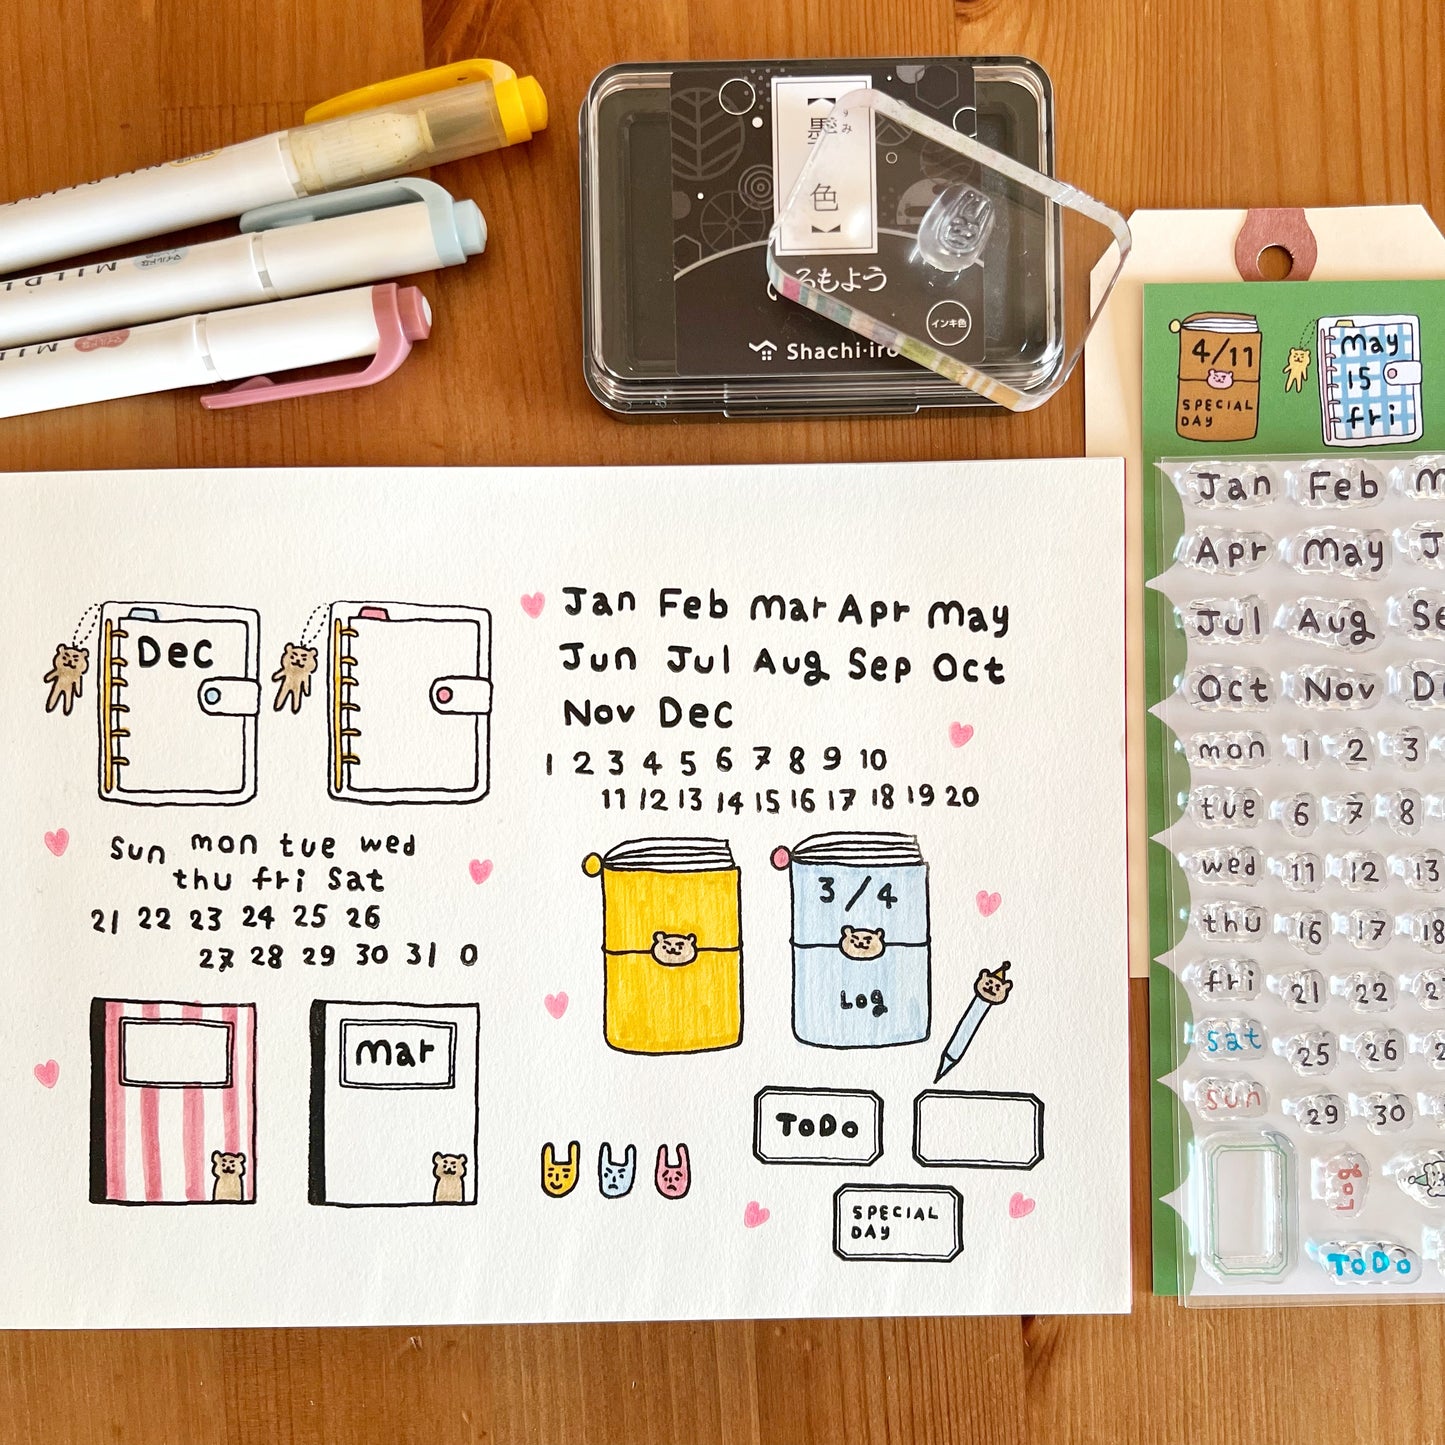 MILDL
MILD
墨
すみ
色
るもよう
インキ色
Shachi·iro
4/11
SPECIAL
DAY
may
15
fri
Jan Feb
Apr may
Jul Aug
Oct Nov
mon 1 2 3
tue 6 7 8
wed 11 12 13
thu 16 17 18
fri 21 22
sat 25 26
sun 29 30
Log
ToDo
Dec
Jan Feb mar Apr may
Jun Jul Aug Sep Oct
Nov Dec
1 2 3 4 5 6 7 8 9 10
11 12 13 14 15 16 17 18 19 20
Sun mon tue wed
thu fri Sat
21 22 23 24 25 26
27 28 29 30 31 0
3/4
Log
mar
ToDo
SPECIAL
DAY